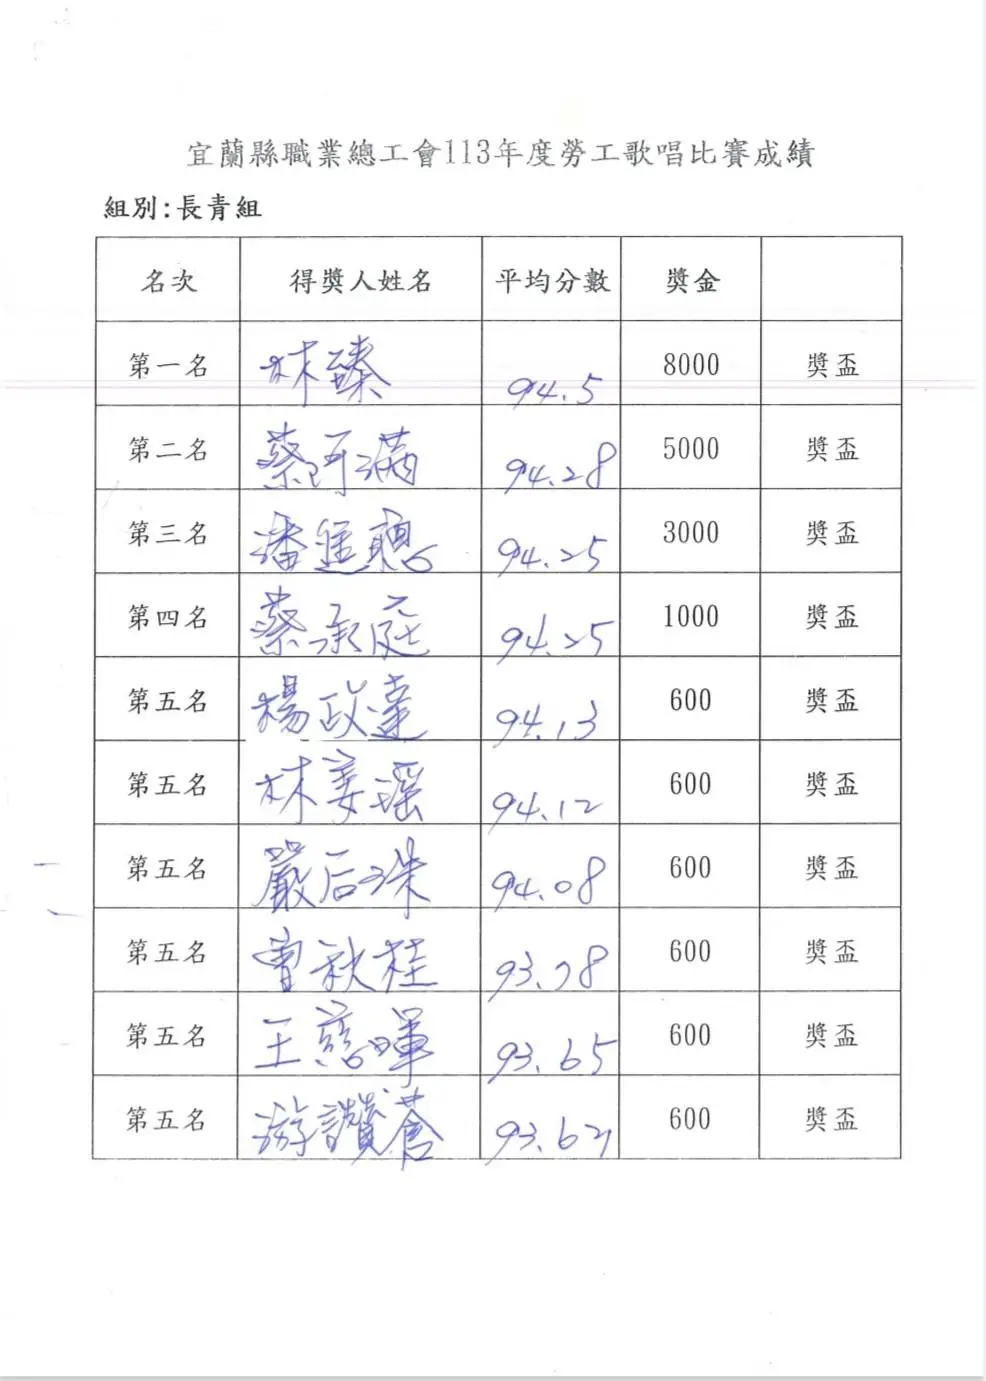 宜蘭縣職業總工會113年度勞工歌唱比賽成績
組別:長青組
名次 得獎人姓名 平均分數 獎金
第一名 林臻 94.5 8000 獎盃
第二名 蔡阿滿 94.28 5000 獎盃
第三名 潘進聰 94.25 3000 獎盃
第四名 蔡承庭 94.25 1000 獎盃
第五名 楊政達 94.13 600 獎盃
第五名 林姜瑶 94.12 600 獎盃
第五名 嚴后珠 94.08 600 獎盃
第五名 曾秋桂 600 獎盃
第五名 王慈暉 93.65 600 獎盃
第五名 游讚蒼 600 獎盃